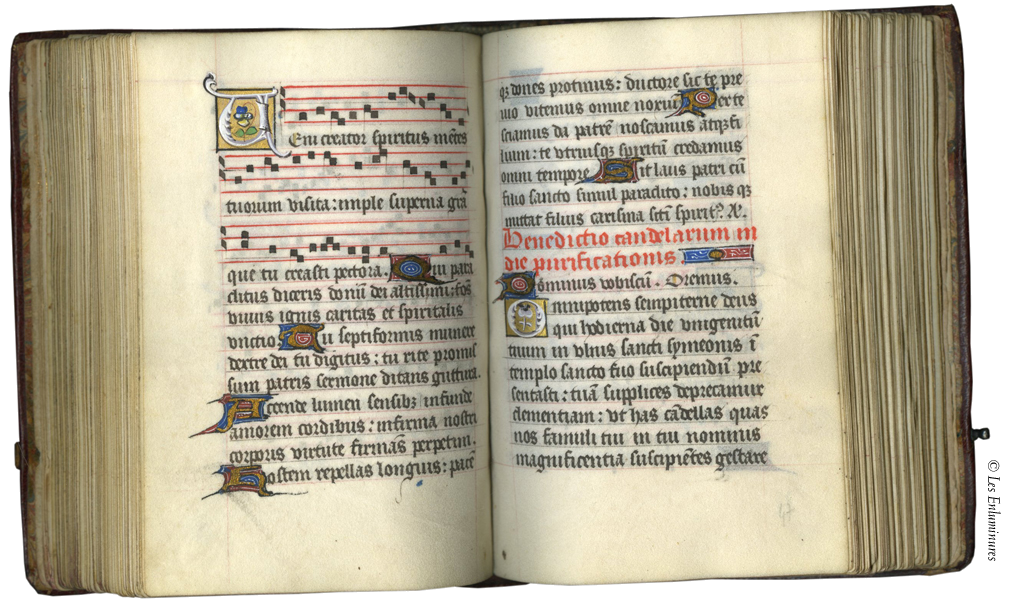 Veni creator spiritus mētes
tuorum visita: imple superna grā
que tu creasti pectora. Qui para
clitus diceris donū dei altissimi: fōs
vivus ignis caritas et spiritalis
unctio. Tu septiformis munere
dextre dei tu digitus: tu rite promis
sum patris sermone ditans guttura.
Accende lumen sensibꝫ infunde
amorem cordibus: infirma nostri
corporis virtute firmās perpetim.
Hostem repellas longius: pacē
qꝫ dones protinus: ductore sic te pre
vio vitemus omne noxiū. Per te
sciamus da patrē noscamus atqꝫ fi
lium: te utriusqꝫ spiritū credamus
omni tempore. Sit laus patri cū
filio sancto simul paradito: nobis qꝫ
mittat filius carisma scti spirit⁹.
Benedictio candelarum in
die purificationis
Dominus vobiscū. Oremus.
Omnipotens sempiterne deus
qui hodierna die unigenitū
tuum in ulnis sancti symeonis ī
templo sancto tuo suscipiendū pre
sentasti: tuā supplices deprecamur
clementiam: ut has cādellas quas
nos famuli tui in tui nominis
magnificentia suscipiētes gestare
© Les Enluminures